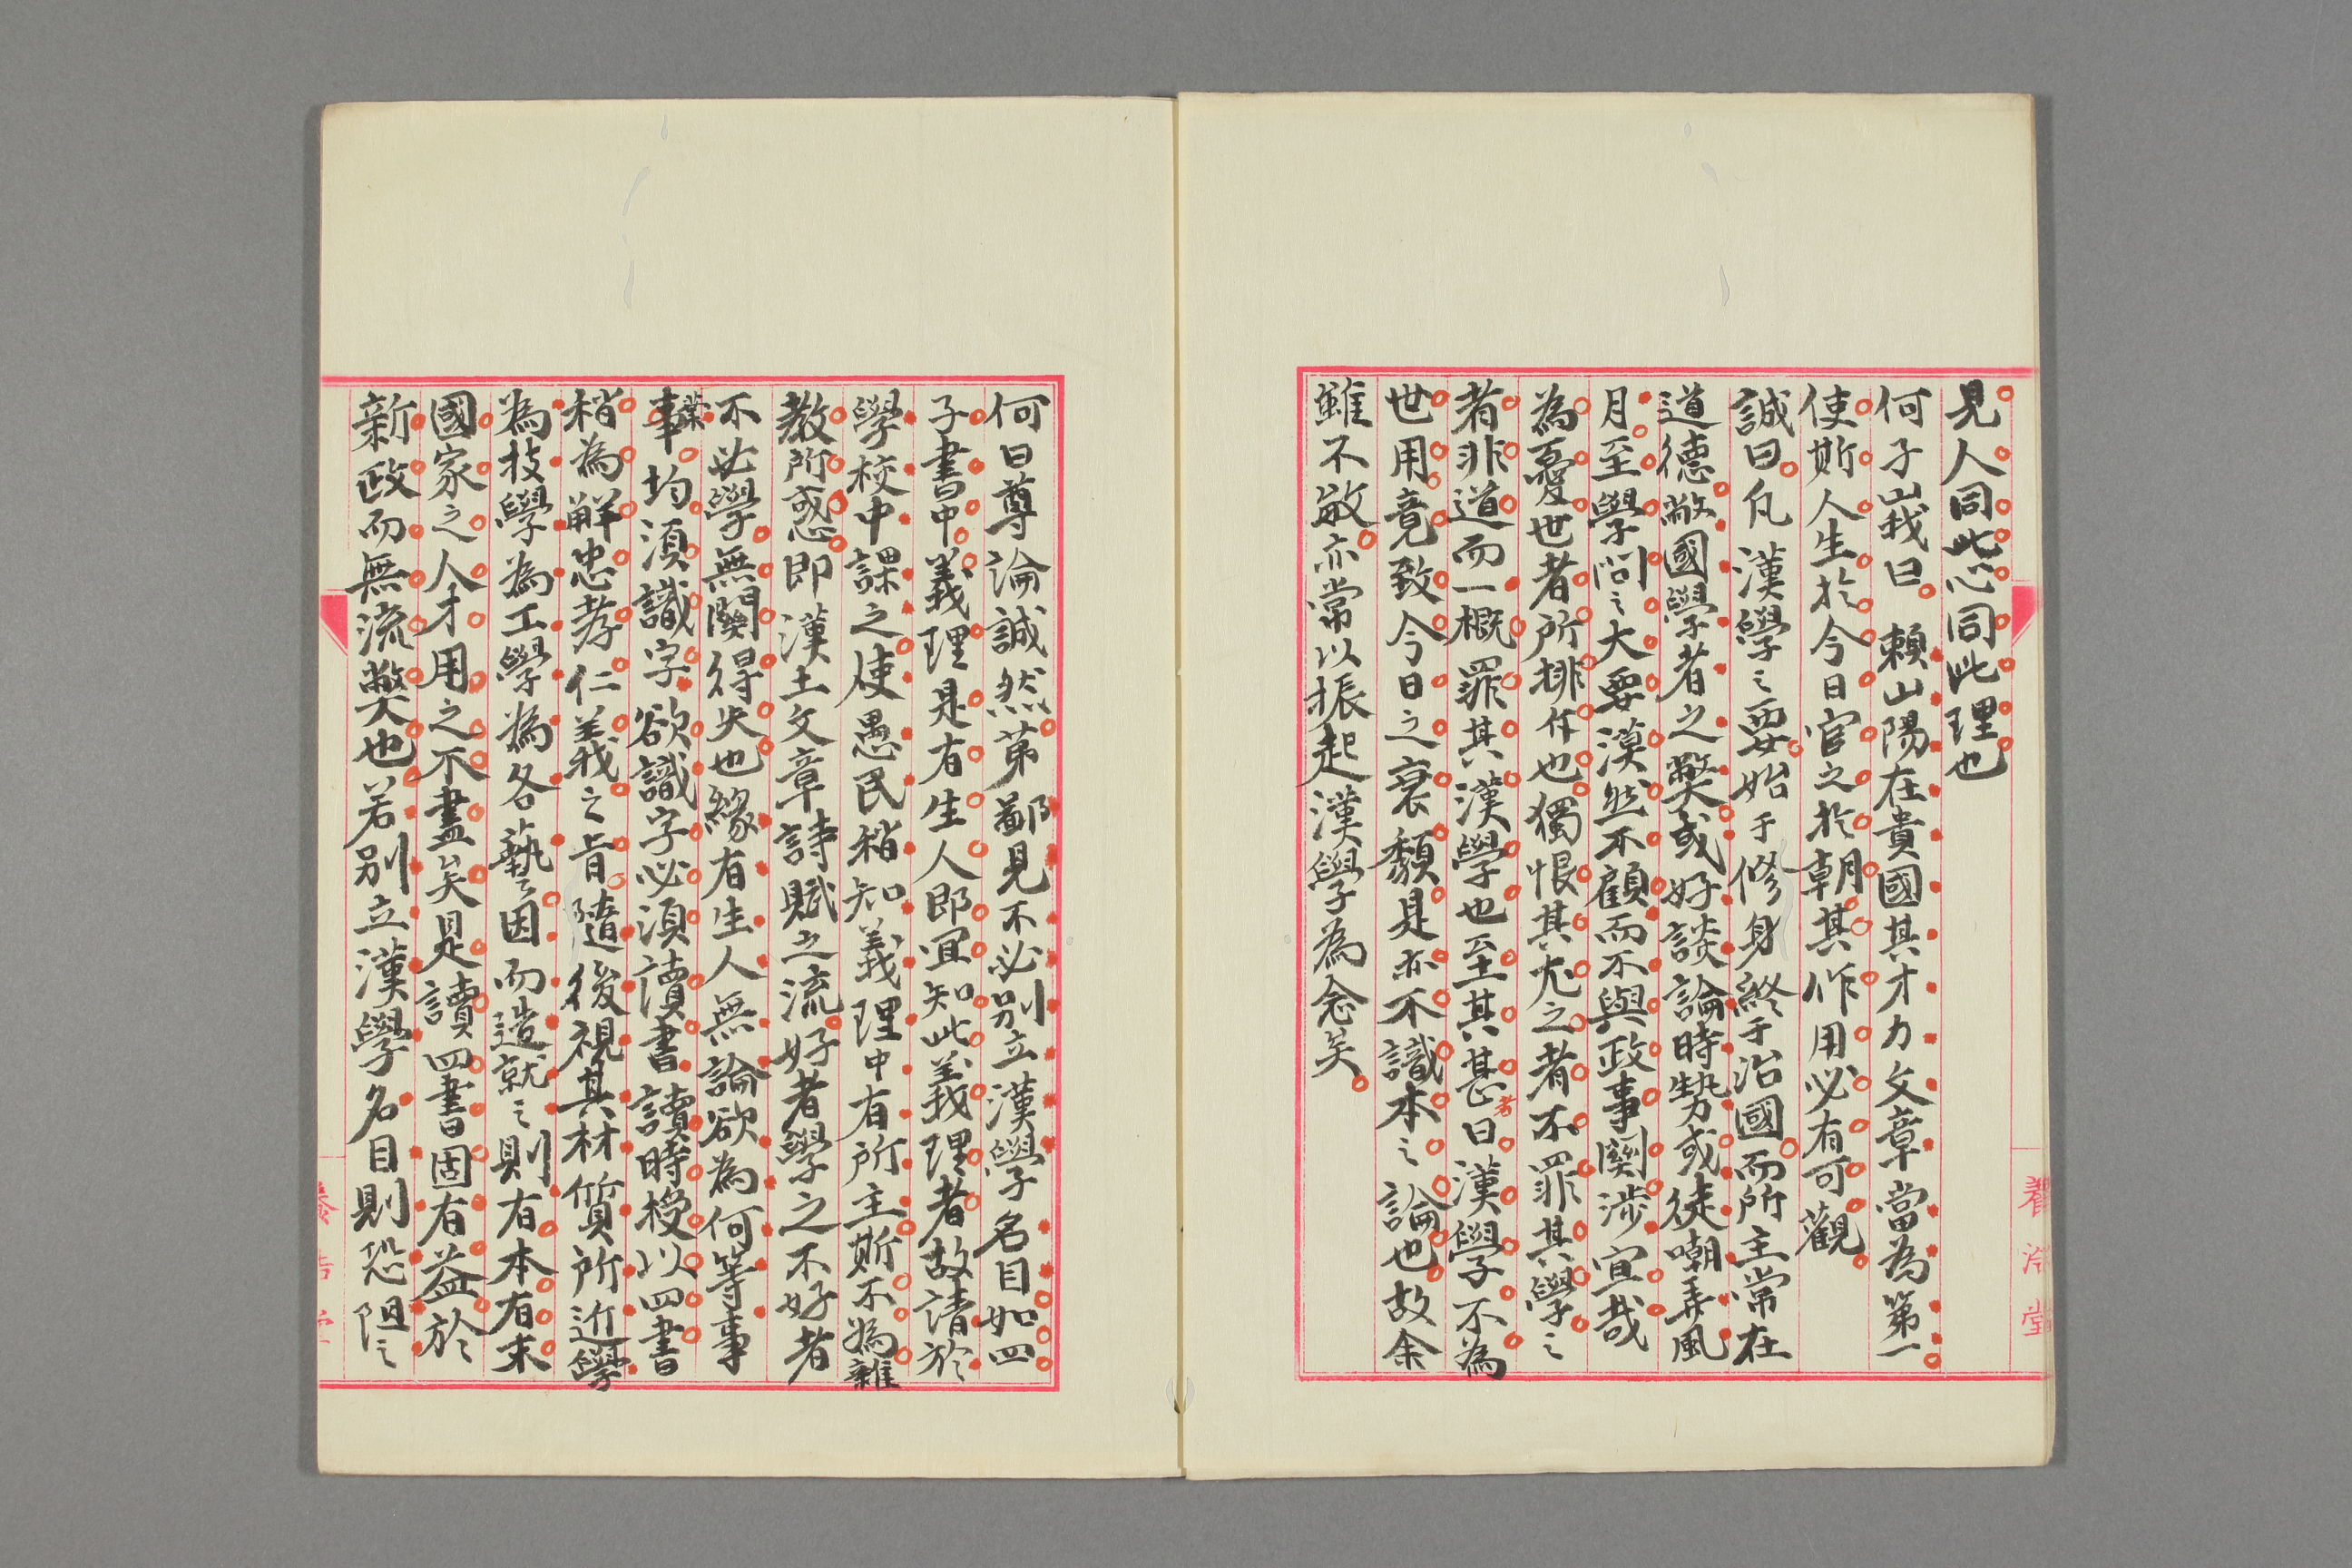 見人同此心同此理也
何子峩曰賴山陽在貴國其才力文章當為第一
使斯人生於今日官之於朝其作用必有可觀
誠曰凡漢學之要始于修身終于治國而所主常在
道德敝國學者之弊或好談論時勢或徒嘲弄風
月至學問之大要漠然不顧而不與政事關涉宜哉
為憂世者所排斥也獨恨其尤之者不罪其學之
者非道而一概罪其漢學也至其甚者曰漢學不為
世用竟致今日之衰頹是亦不識本之論也故余
雖不敏亦常以振起漢學為念矣
養浩堂
何曰尊論誠然第鄙見不必別立漢學名目如四
子書中義理是有生人即宜知此義理者故請於
學校中課之使愚民稍知義理中有所主斯不為雜
教所惑即漢土文章詩賦之流好者學之不好者
不必學無關得失也緣有生人無論欲為何等事
業事均須識字欲識字必須讀書讀時授以四書
稍為解忠孝仁義之旨隨後視其材質所近學
為技學為工學為各藝因而造就之則有本有末
國家之人才用之不盡矣是讀四書固有益於
新政而無流弊也若別立漢學名目則恐阻之